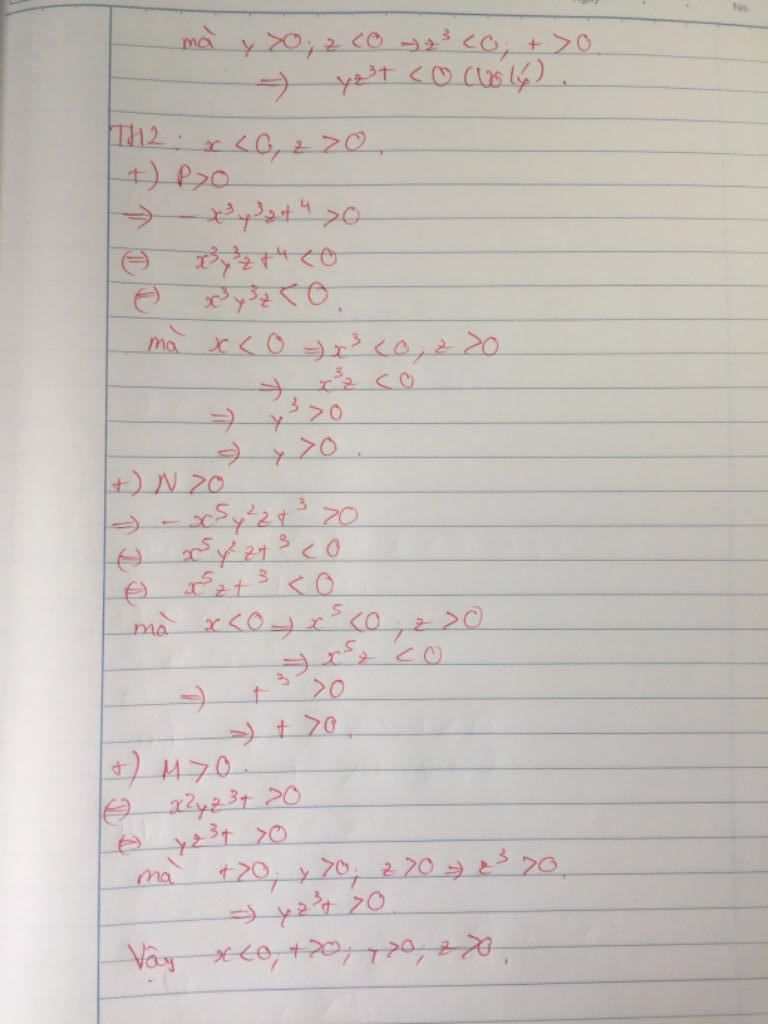 No.
mà y >0; z <0 ⇒ z³ <0; t >0.
⇒ yz³t <0 (Vô lý).
TH2: x <0, z >0.
+) P>0
⇒ -x³y³zt⁴ >0
⇔ x³y³zt⁴ <0
⇔ x³y³z <0.
mà x <0 ⇒ x³ <0, z >0
⇒ x³z <0
⇒ y³ >0
⇒ y >0.
+) N >0
⇒ -x⁵y²zt³ >0
⇔ x⁵y²zt³ <0
⇔ x⁵zt³ <0
mà x <0 ⇒ x⁵ <0; z >0
⇒ x⁵z <0
⇒ t³ >0
⇒ t >0.
+) M >0.
⇔ x²yz³t >0
⇔ yz³t >0
mà t>0; y >0; z >0 ⇒ z³ >0.
⇒ yz³t >0.
Vậy x<0, t>0; y>0; z>0.